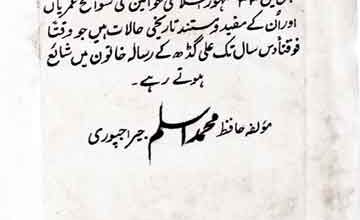 خواتین کی سوانح عمریاں
اور اُن کے مفید و مستند تاریخی حالات ہیں جو وقتاً
فوقتاً دس سال تک علی گڈھ کے رسالہ خاتون میں شائع
ہوتے رہے۔
مؤلفہ حافظ محمد اسلم جیراجپوری